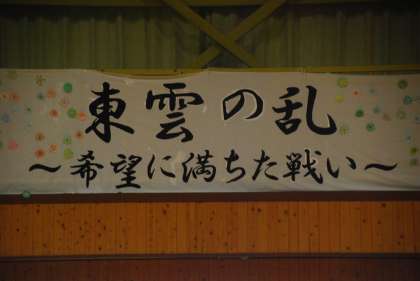 東雲の乱
～希望に満ちた戦い～